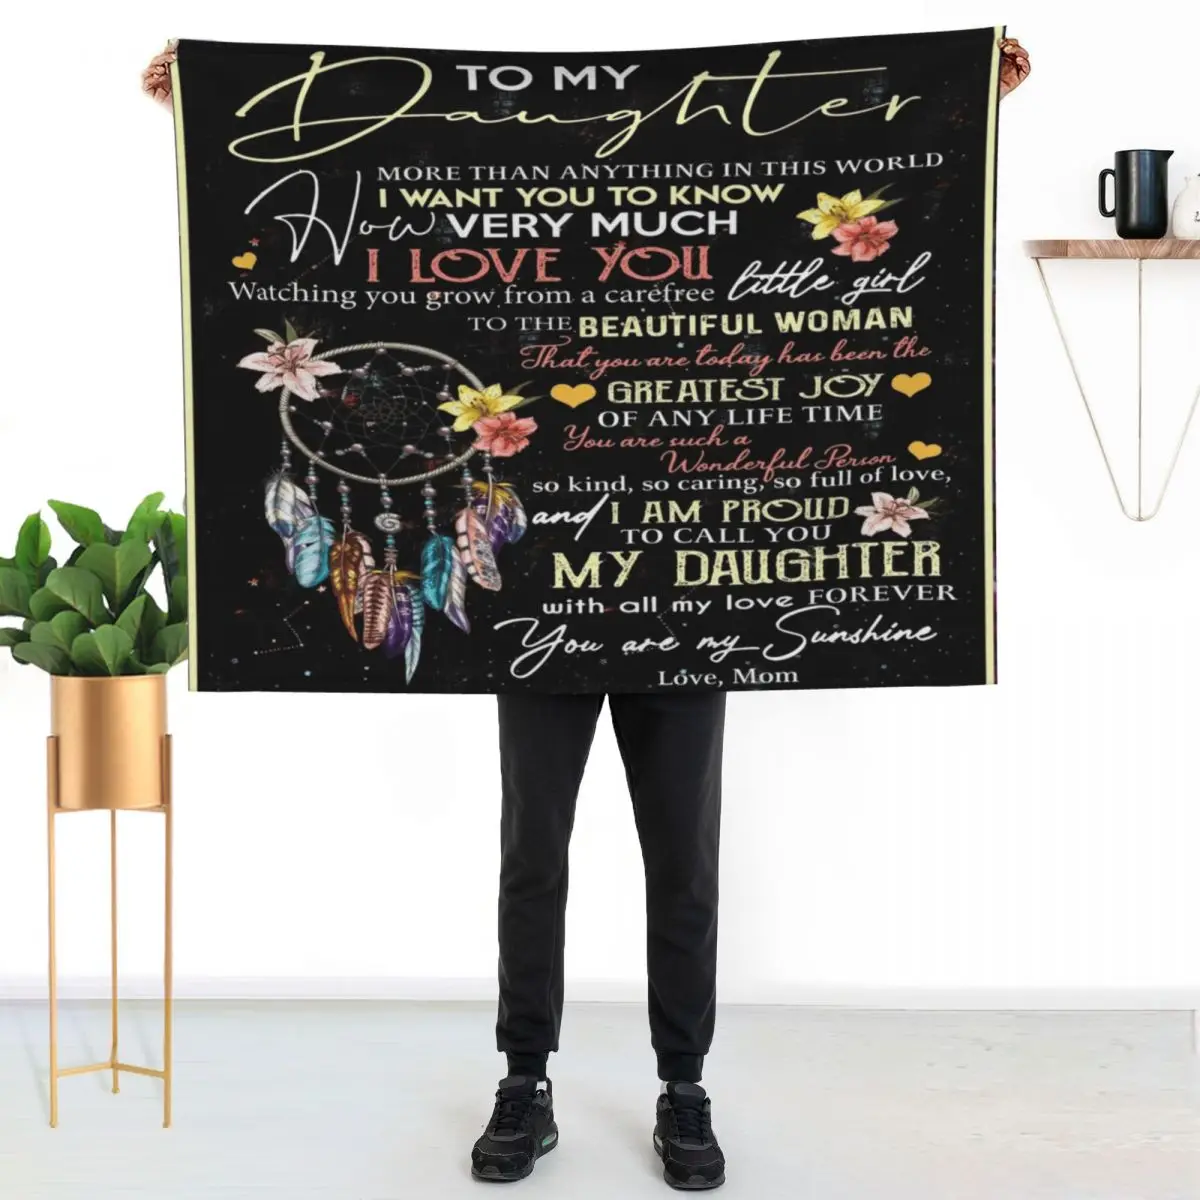 TO MY
Daughter
MORE THAN ANYTHING IN THIS WORLD
I WANT YOU TO KNOW
How VERY MUCH
I LOVE YOU
Watching you grow from a carefree little girl
TO THE BEAUTIFUL WOMAN
That you are today has been the
GREATEST JOY
OF ANY LIFE TIME
You are such a
Wonderful Person
so kind, so caring, so full of love,
and I AM PROUD
TO CALL YOU
MY DAUGHTER
with all my love FOREVER
You are my Sunshine
Love, Mom